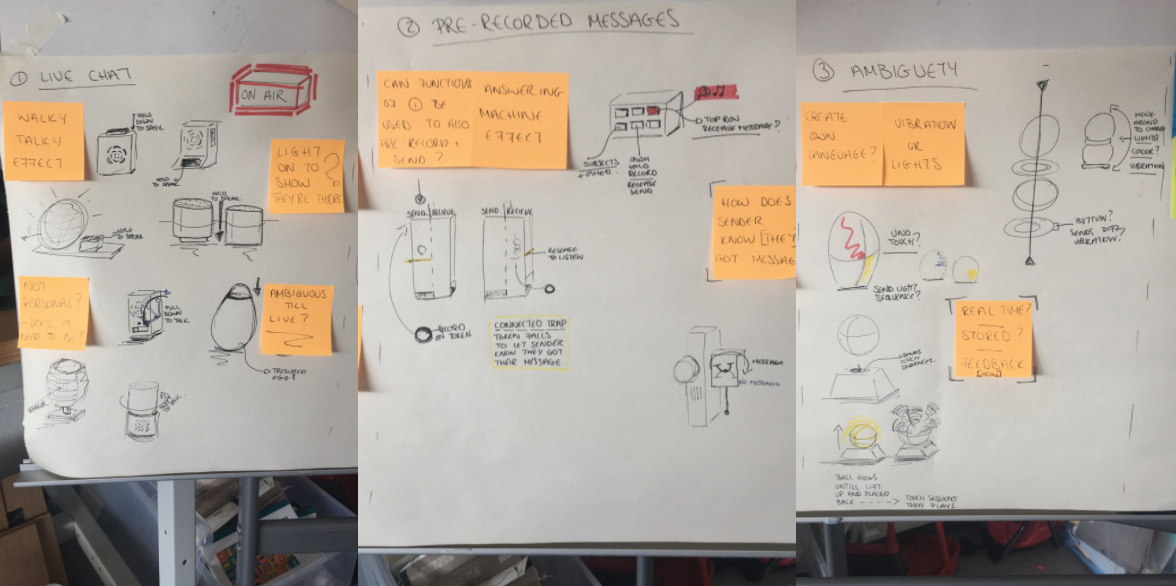 ① LIVE CHAT
ON AIR
WALKY
TALKY
EFFECT
HOLD
DOWN
TO SPEAK
HOLD
TO SPEAK
LIGHT
ON TO
SHOW
THEY'RE THERE
?
HOLD
TO SPEAK
HOLD
TO SPEAK
NOT
PERSONAL?
-DOES IT
NEED TO BE?
PULL
DOWN
TO TALK
AMBIGUOUS
TILL
LIVE?
② PRE-RECORDED MESSAGES
CAN FUNCTIONS
OF ① BE
USED TO ALSO
PRE RECORD +
SEND?
ANSWERING
MACHINE
EFFECT
TOP ROW
RECEIVE MESSAGE?
PUSH
HOLD
RECORD
RELEASE
SEND
HOW DOES
SENDER
KNOW [THEY
GOT MESSAGE
SEND RECIEVE
SEND RECIEVE
RELEASE
TO LISTEN
RECORD
ON TOKEN
CONNECTED TRAP
TOKEN FALLS
TO LET SENDER
KNOW THEY GOT
THEIR MESSAGE
MESSAGE
NO MESSAGE
③ AMBIGUETY
CREATE
OWN
LANGUAGE?
VIBRATION
OR
LIGHTS
MOVE
AROUND TO CHANGE
LIGHTS
COLOUR?
VIBRATION
BUTTON?
SENDS DIFF
VIBRATION?
TOUCH?
SEND LIGHT?
SEQUENCE?
REAL TIME?
STORED?
FEEDBACK
BALL GLOWS
UNTILL LIFT
UP AND PLACED
BACK ----> TOUCH SEQUENCE
THEN PLAYS.